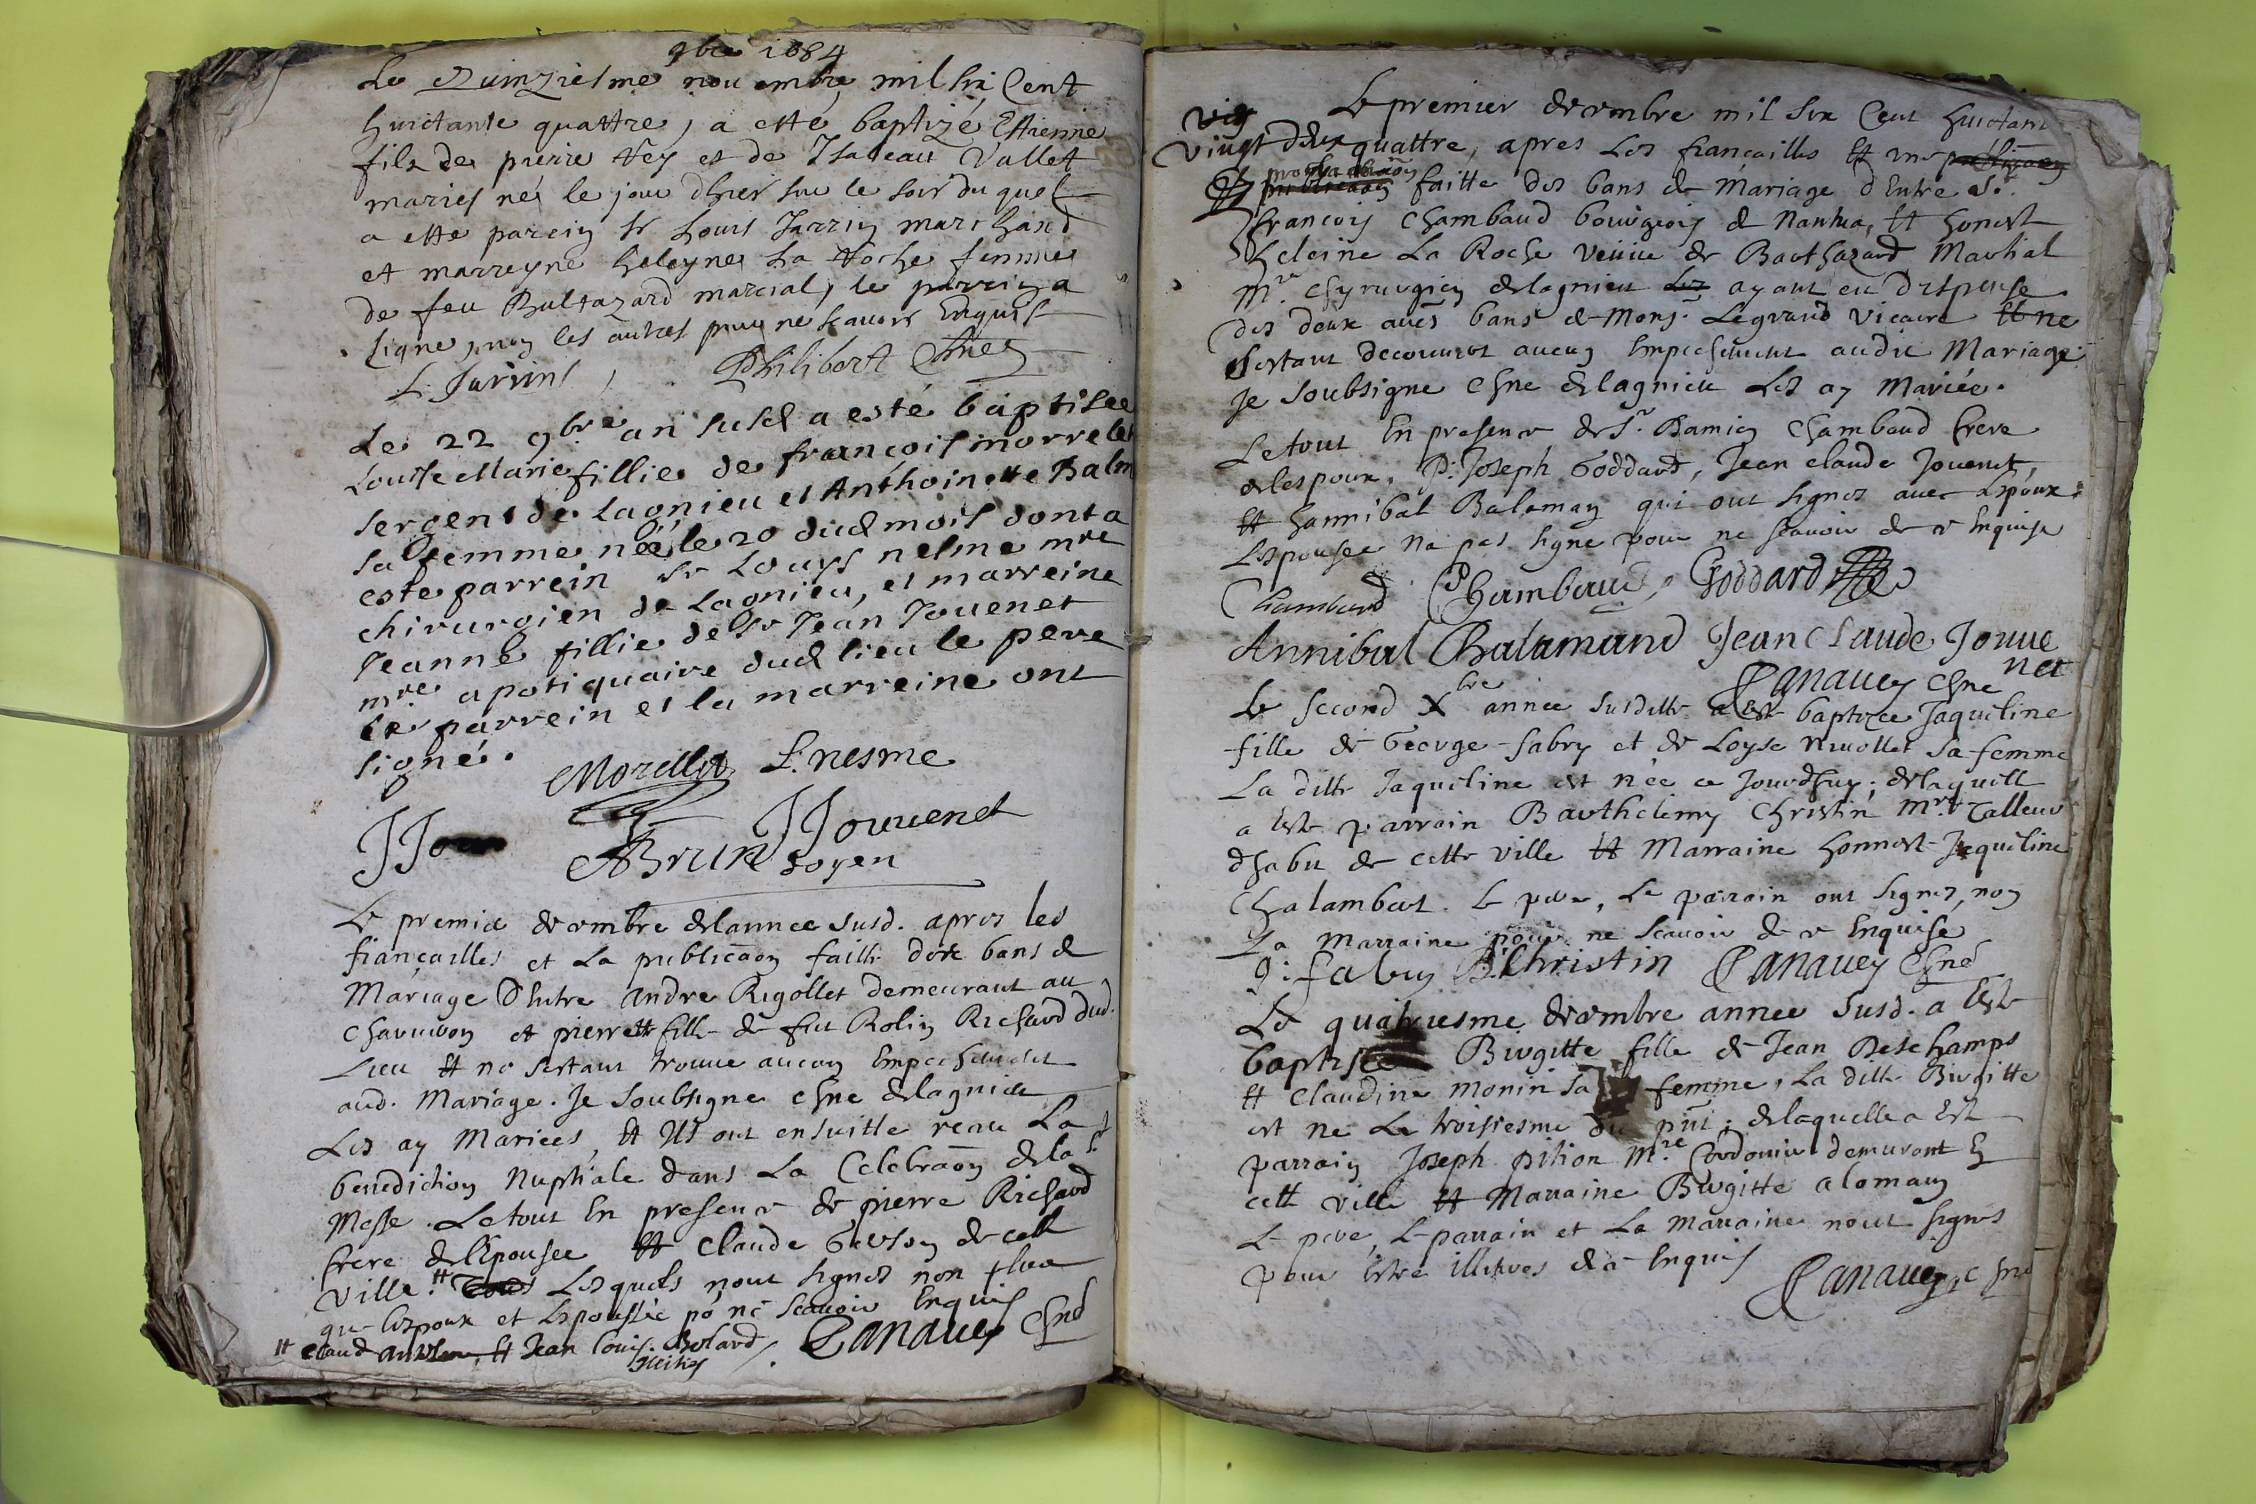 9bre 1684
Le quinziesme nouembre mil six Cent
huictante quattre, a esté baptizé Estienne
filz de pierre Rey et de Isabeau Vallet
mariés né le jour d'hier sur le soir du quel
a este parrein Sr Louis Jarrin marchand
et marreyne heleyne La Roche femme
de feu Baltazard marcial, le parrein a
signe, non les autres pour ne scauoir Enquis
L. Jarrins Philibert Chne
Le 22 9bre an susd a esté baptisee
Louise Marie fillie de françois morrelet
sergent de Lagnieu et Anthoinette Balm
sa femme néé le 20 dud mois dont a
este parrein sr Louys nesme mre
chirurgien de Lagnieu, et marreine
Jeanne fillie de Sr Jean Jouenet
mre apotiquaire dud lieu le pere
le parrein et la marreine ont
signé.
Morellet L. nesme
JJou JJouuenet
ABrun Doyen
Le premier decembre delannee susd. apres les
fiançailles et La publicaõn faitte des bans de
Mariage D'Entre andre Rigollet demeurant au
Charueron et pierrette fille de feu Rolin Richard dud.
Lieu Et ne sestant trouue aucun Empechement
aud. Mariage. Je soubsigne chne delagnieu
Les ay Mariees, Et Ils ont ensuitte receu La
benediction Nuptiale dans La Celebraõn de la Ste
Messe. Le tout En presence de pierre Richard
frere dellEpousee Et Claude de cette
Ville. Tous Lesquels nont signes non plus
que lespoux et Lespousée po ne scauoir Enquis
Et claud Et Jean Louis Berard / Canauey Chne
Vig Le premier decembre mil six Cent huictante
Vingt deux quattre, apres Les fiancailles Et vne publicaõn
Et publicaõn faitte des bans de Mariage dEntre Sr.
francois Chambaud bourgeois de Nantua, Et honeste
heleine La Roche veuue de Barthazard Martial
Mre. Chyrurgien delagnieu Les ayant eu Dispense
des deux aues bans de Monsr. Legrand Vicaire Et ne
sestant decouuert aucun Empechement audit Mariage.
Je soubsigne Chne delagnieu Les ay Mariée.
Le tout En presence de Sr. Damien Chambaud frere
delespoux, Sr. Joseph Goddard, Jean claude Jouenet,
Et hannibal Balaman qui ont signes auec Lepoux.
Lespousee Na pas signe pour ne scauoir de ce Enquise
Chambaud Chambaud, Goddard
Annibal Chalamand Jean Claude Jouue
net
Canauey Chne
Le second Xbre annee susditte a este baptizee Jaqueline
fille de George fabry et de Loyse Niuollet sa femme
La ditte Jaqueline est née ce Jourdhuy; delaquelle
a este parrain Barthelemy Christin Mre Talleur
dhabit de cette ville Et Marraine honneste Jaqueline
Chalambert. Le pere, Le parrain ont signes, non
La Marraine pour ne scauoir de ce Enquise
g: fabry B. Christin Canauey Chne
Le quatriesme decembre annee susd. a este
baptisee Birgitte fille de Jean Deschamps
Et Claudine Monin sa femme, La ditte Birgitte
est ne Le troisiesme du pnt; delaquelle a Este
parrain Joseph pition Mre. Cordonier demeurant En
cette ville Et Marraine Birgitte alomany
Le pere, Le parrain et La Marraine nont signes
pour Estre illitteres de ce Enquis
Canauey Chne